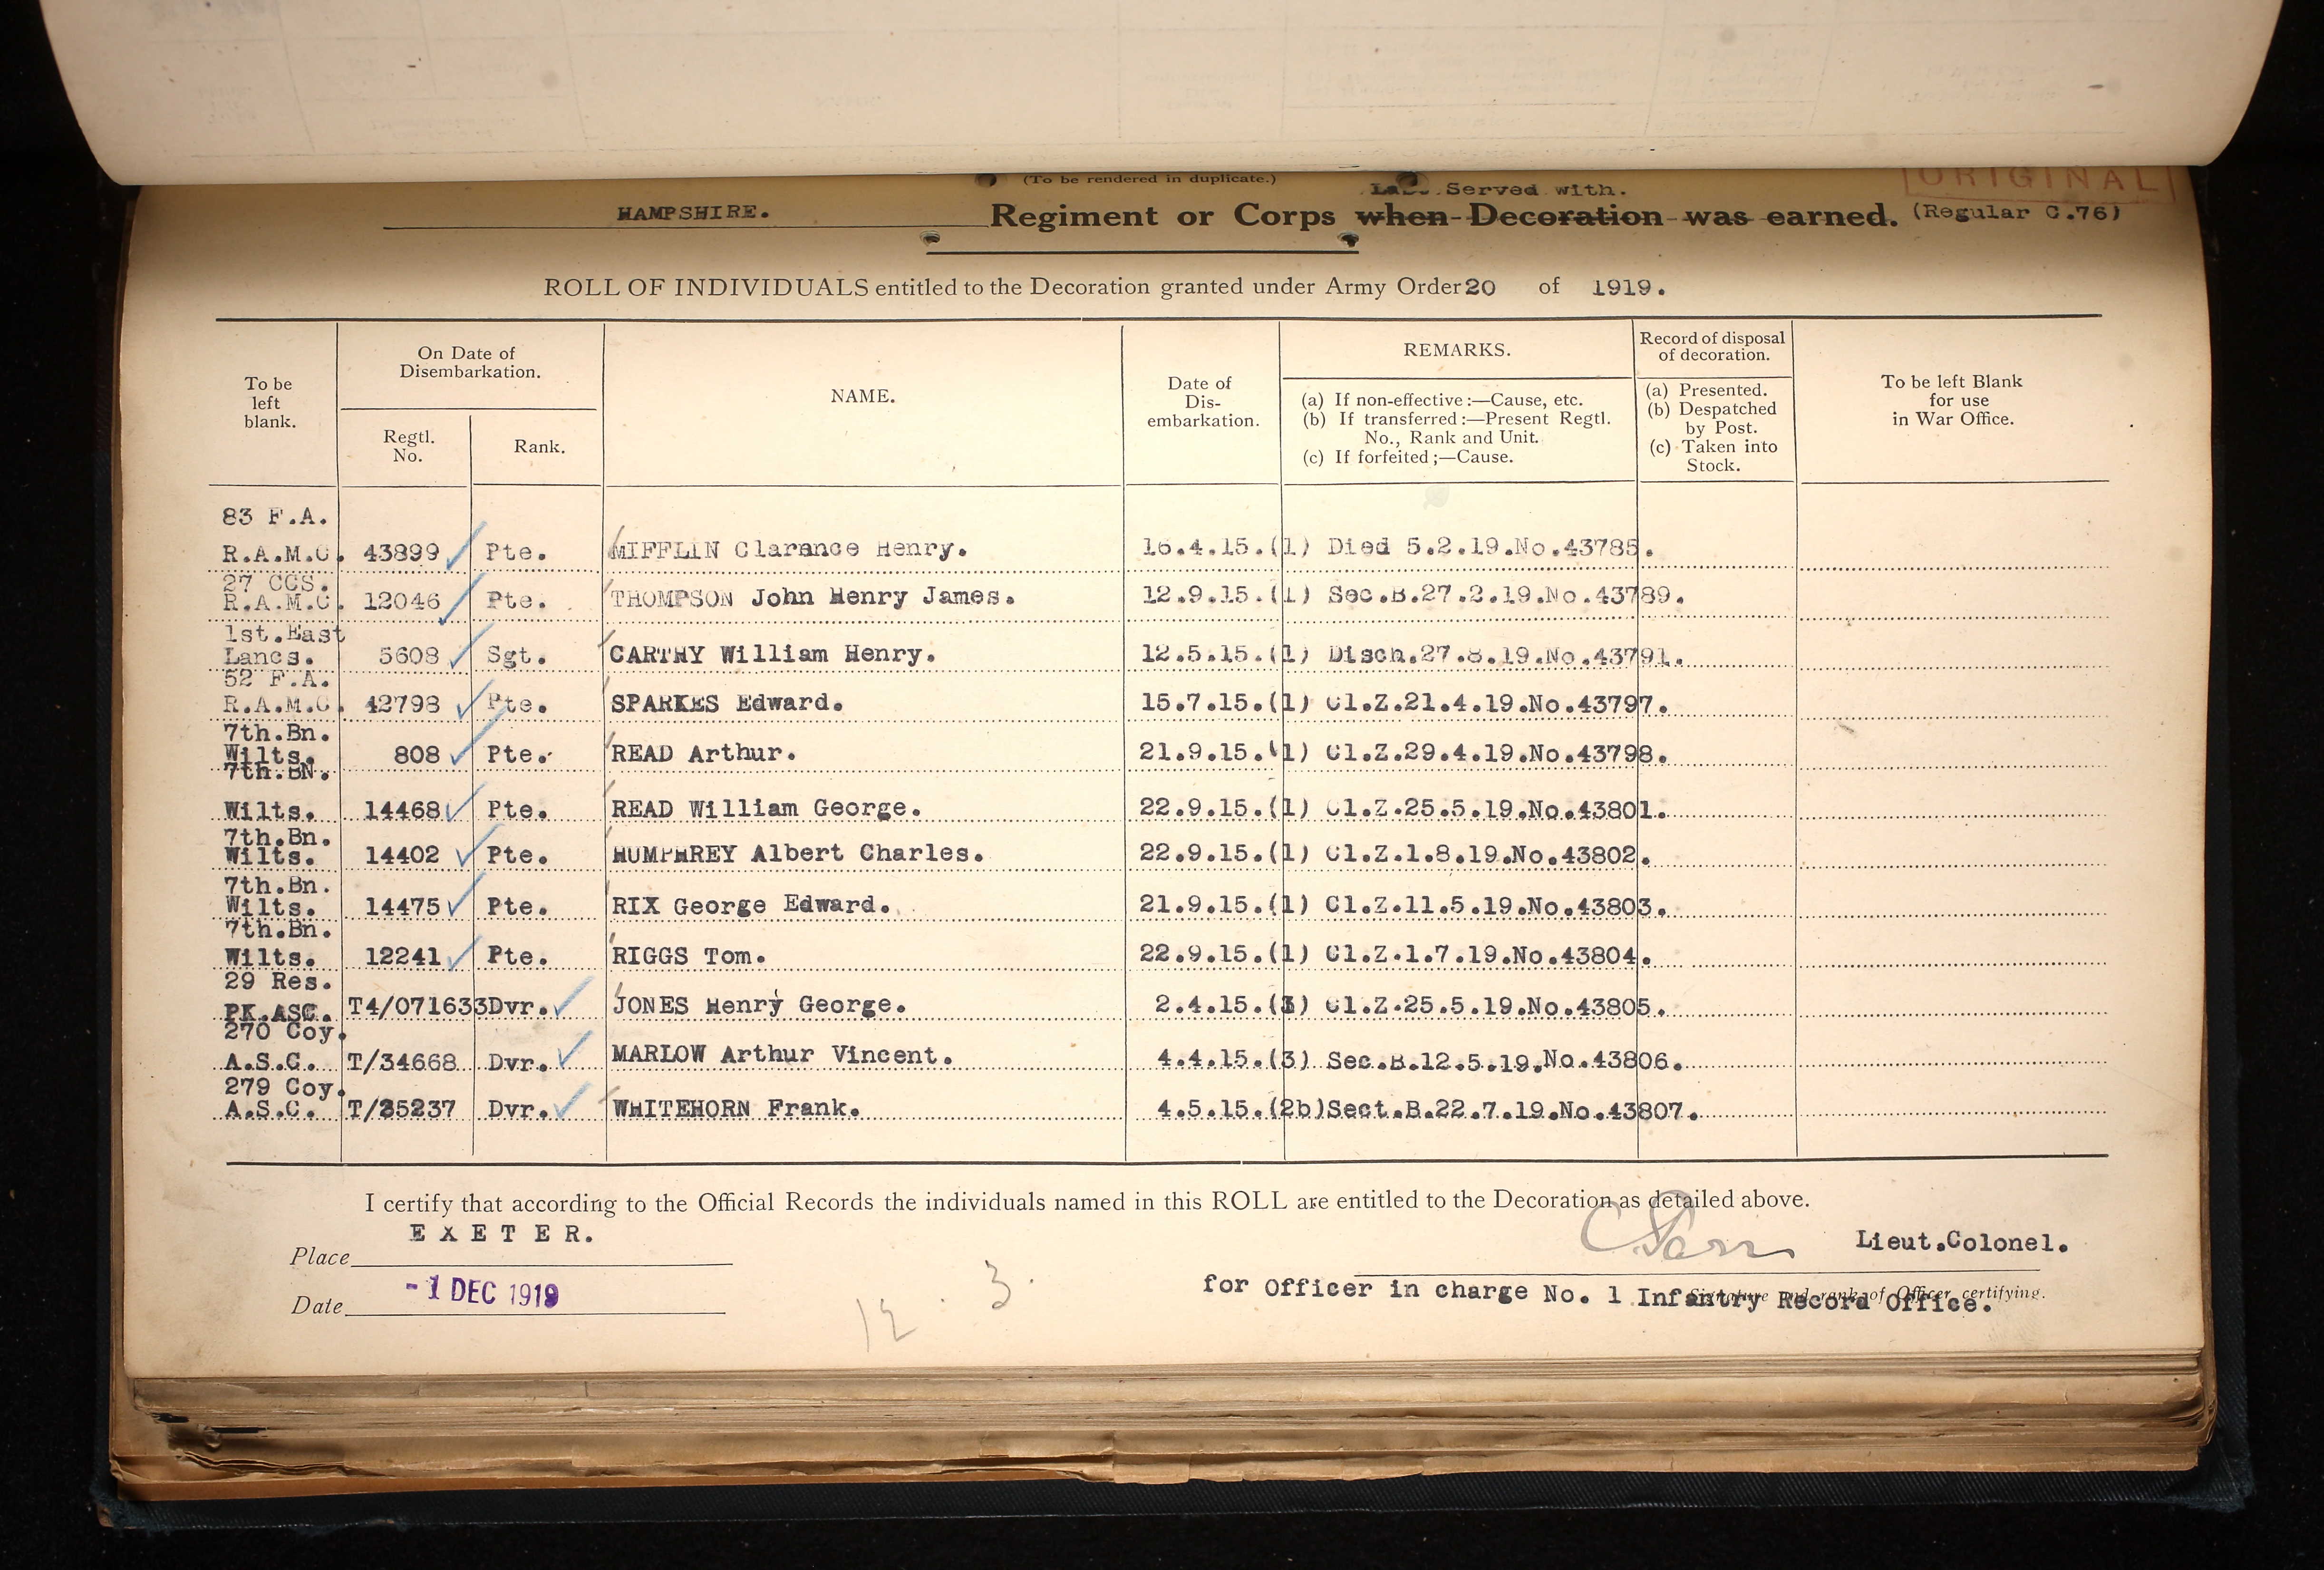 (To be rendered in duplicate.)
ORIGINAL
Served with.
HAMPSHIRE. Regiment or Corps when Decoration was earned. (Regular C.76)
ROLL OF INDIVIDUALS entitled to the Decoration granted under Army Order 20 of 1919.
To be left blank.
On Date of Disembarkation.
Regtl. No.
Rank.
NAME.
Date of Dis-embarkation.
REMARKS.
(a) If non-effective:—Cause, etc.
(b) If transferred:—Present Regtl. No., Rank and Unit.
(c) If forfeited;—Cause.
Record of disposal of decoration.
(a) Presented.
(b) Despatched by Post.
(c) Taken into Stock.
To be left Blank for use in War Office.
83 F.A.
R.A.M.C. 43899 Pte. MIFFLIN Clarance Henry. 16.4.15. (1) Died 5.2.19.No.43785.
27 CCS.
R.A.M.C. 12046 Pte. THOMPSON John Henry James. 12.9.15. (1) Sec.B.27.2.19.No.43789.
1st.East
Lancs. 5608 Sgt. CARTHY William Henry. 12.5.15. (1) Disch.27.8.19.No.43791.
52 F.A.
R.A.M.C. 42798 Pte. SPARKES Edward. 15.7.15. (1) Cl.Z.21.4.19.No.43797.
7th.Bn.
Wilts. 808 Pte. READ Arthur. 21.9.15. (1) Cl.Z.29.4.19.No.43798.
7th.BN.
Wilts. 14468 Pte. READ William George. 22.9.15. (1) Cl.Z.25.5.19.No.43801.
7th.Bn.
Wilts. 14402 Pte. HUMPHREY Albert Charles. 22.9.15. (1) Cl.Z.1.8.19.No.43802.
7th.Bn.
Wilts. 14475 Pte. RIX George Edward. 21.9.15. (1) Cl.Z.11.5.19.No.43803.
7th.Bn.
Wilts. 12241 Pte. RIGGS Tom. 22.9.15. (1) Cl.Z.1.7.19.No.43804.
29 Res.
PK.ASC. T4/071633 Dvr. JONES Henry George. 2.4.15. Cl.Z.25.5.19.No.43805.
270 Coy.
A.S.C. T/34668 Dvr. MARLOW Arthur Vincent. 4.4.15. (3) Sec.B.12.5.19.No.43806.
279 Coy.
A.S.C. T/35237 Dvr. WHITEHORN Frank. 4.5.15. (2b) Sect.B.22.7.19.No.43807.
I certify that according to the Official Records the individuals named in this ROLL are entitled to the Decoration as detailed above.
Place EXETER.
Lieut.Colonel.
Date -1 DEC 1919
for Officer in charge No. 1 Infantry Record Office.
Signature and rank of Officer certifying.
12 . 3.